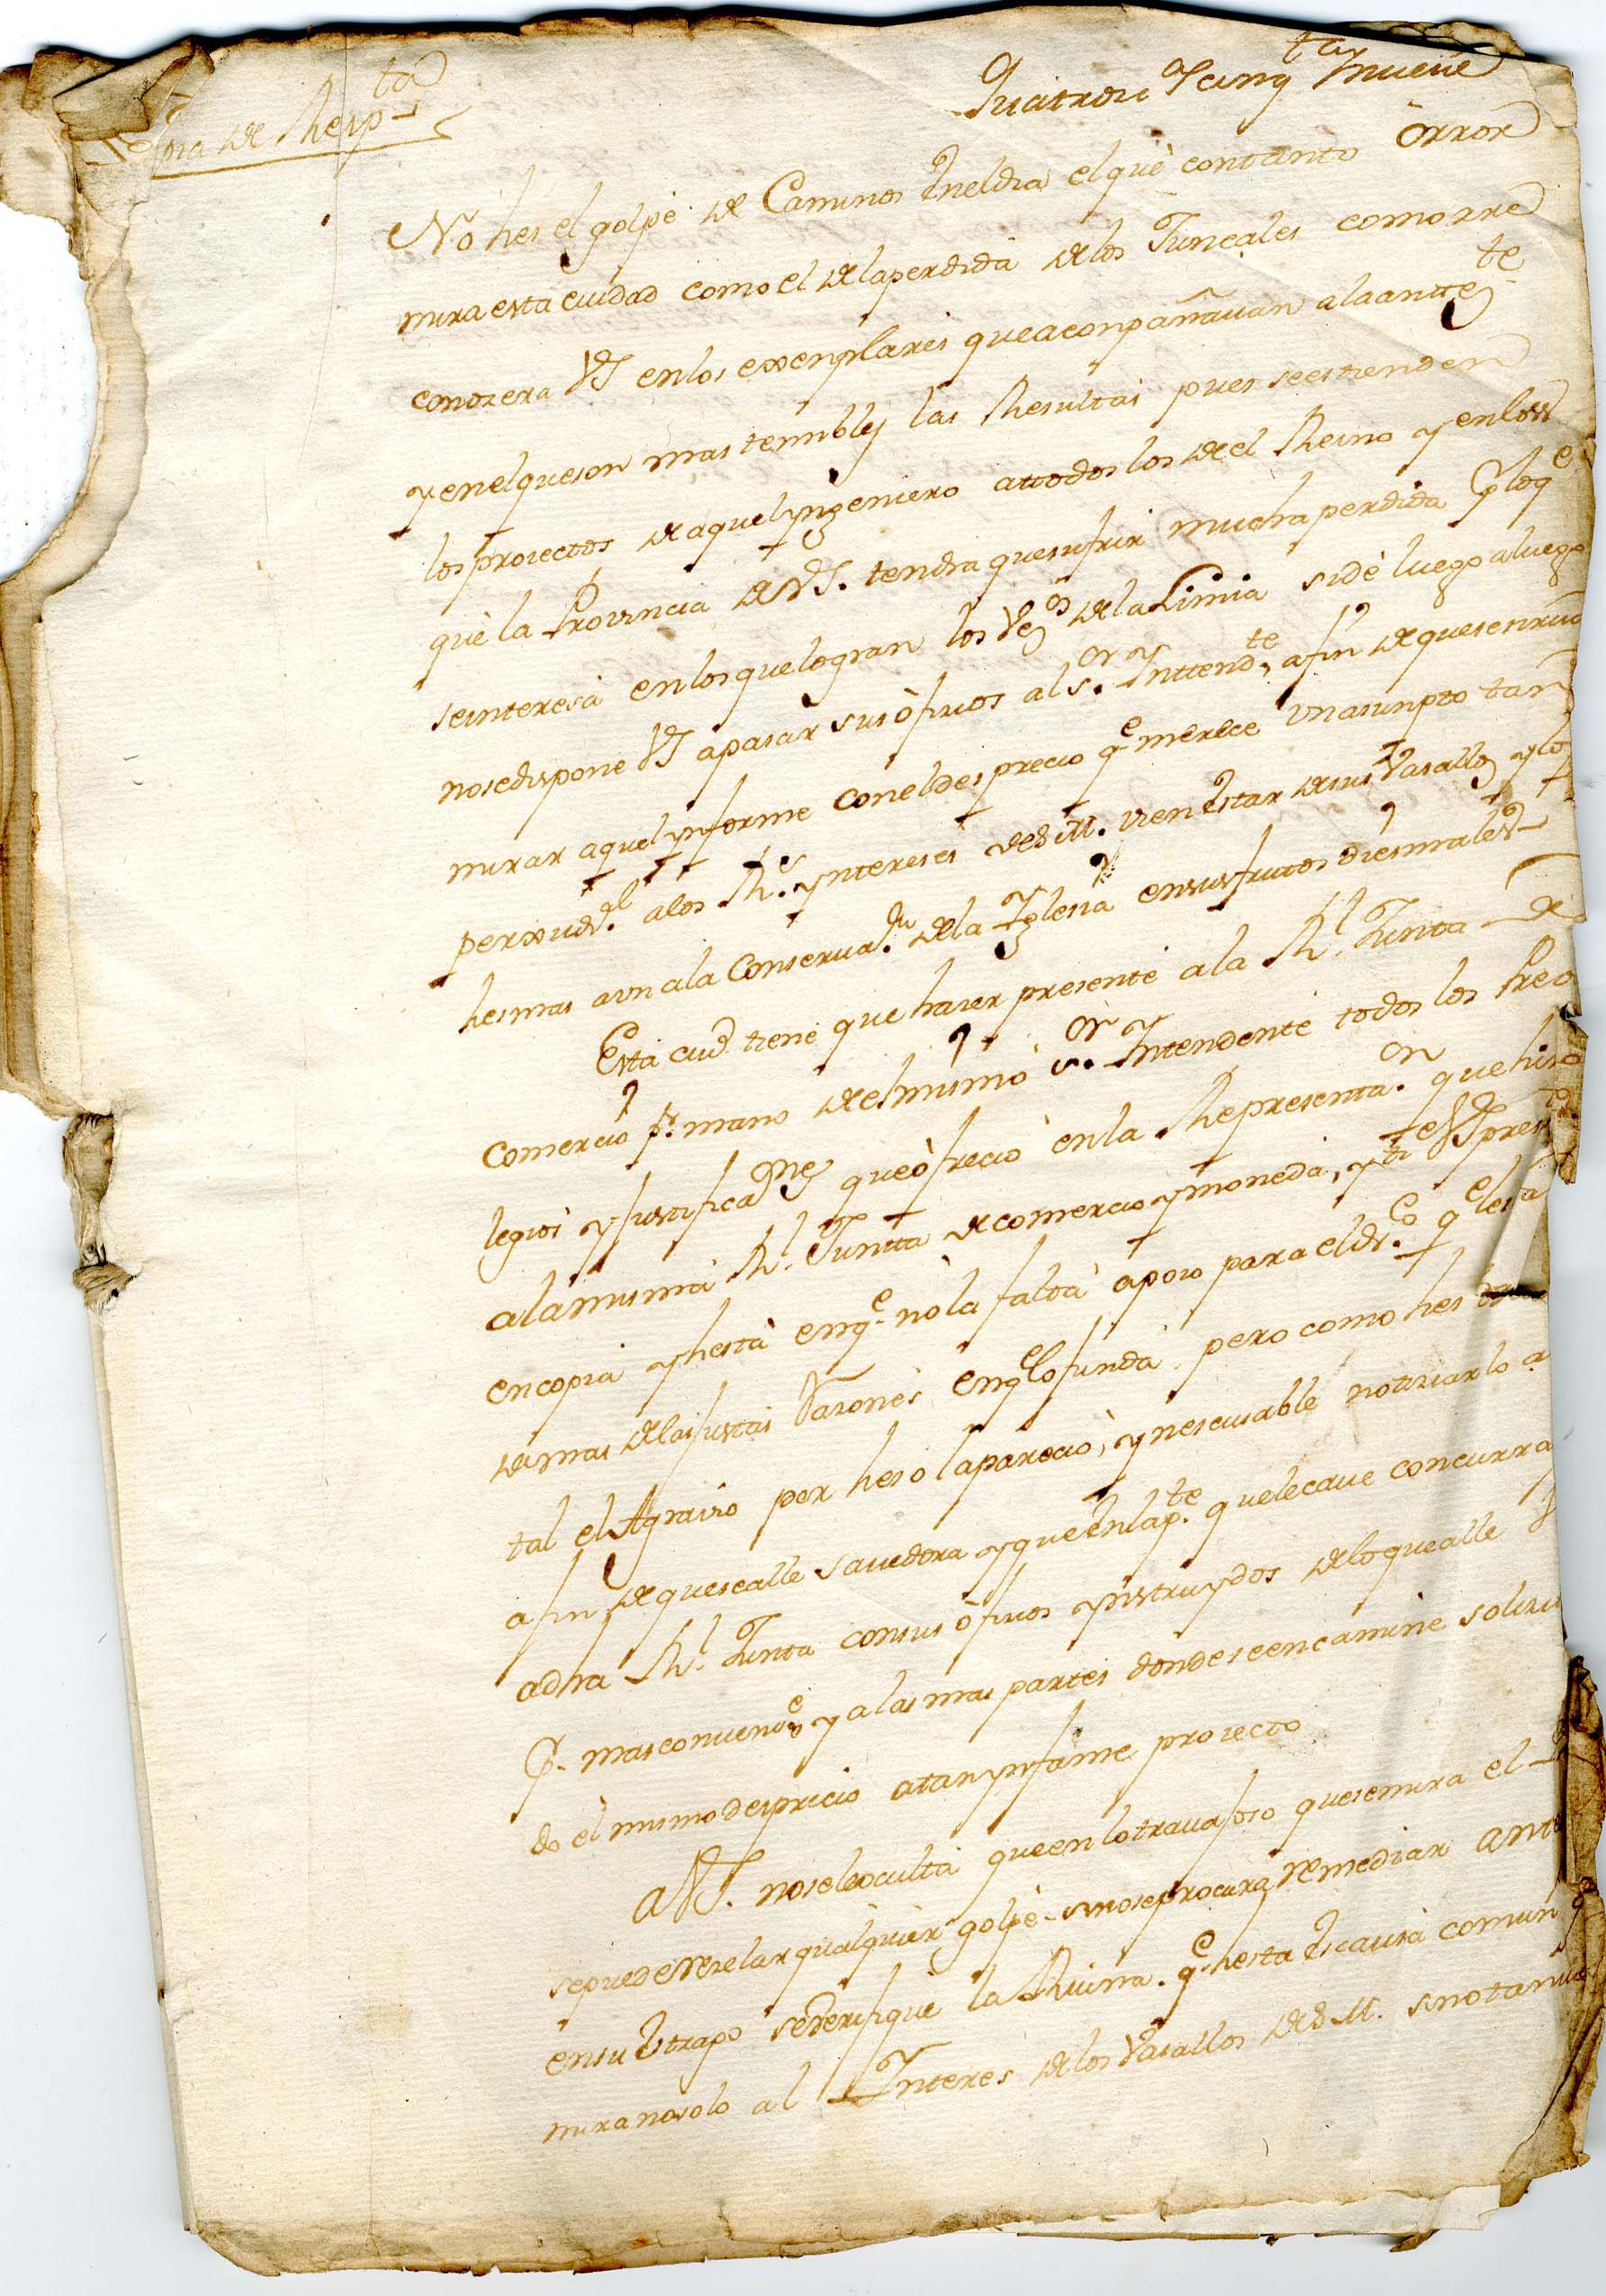 pia de Resp.ta
Quatroz.s Y cinq.ta Y nueue
No hes el golpe de Caminos Eneldia elquè contanto òrror
mira esta ciudad como el delaperdida delos Junçales comorre
conozera VS enlos exenplares queaconpañauan alaantte.te
yenelqueson mas temibles las Resultas pues seestienden
los proiectos deaquel ynGeniero attodos los deel Reino y enlos
què la Provincia deVS. tendra quesufrir mucha perdida Ploq.e
seinteresa enlosquelogran los Vez.os dela Limia sidè luego aluego
nosedispone VS apasar sus òfizios al S.or Yntend.te, afin dequese
mirar aquel ynforme coneldesprecio q.e merece Vnasunpto tan
perxud.l alos R.s yntereses deSM. vien Estar desus Vasallos ylo
hesmas avn ala Conserua.n dela Yglesia ensusfrutos diesmales
Esta ciud tiene que hazer presente ala R.l Junta de
Comercio p.r mano delmismo S.or Yntendente todos los Preui
legios yJustifica.nes queòfrecio ènla Representa.on que hiso
alamisma R.l Junta decomercio ymoneda, y VS
encopia yhestà enq.e nòla falta apoio para eldr.o q.e lesa
demas delasjustas Razones enq.e lofunda. pero como hes
tal el Agrauio por heso laparecio, ynescusable notiziarlo a
afin dequescalle sauedora yque Enlap.te quelecaue concurra
adha R.l Junta consus òfizios ynstruydos deloquealle
P. masconuen.e yalasmas partes dondeseencamine solizi
do èl mismo desprecio atan ynfame proiecto
AVS. noseleoculta queenlotrauajoso quesemira el
sepuede Reselar qualquier golpè sinoseprocura remediar ante
ensu Estrapo seVerifique la Ruina. q.e hesta Escausa comun
mira nosolo al Ynteres delos Vasallos deSM. sinotanui